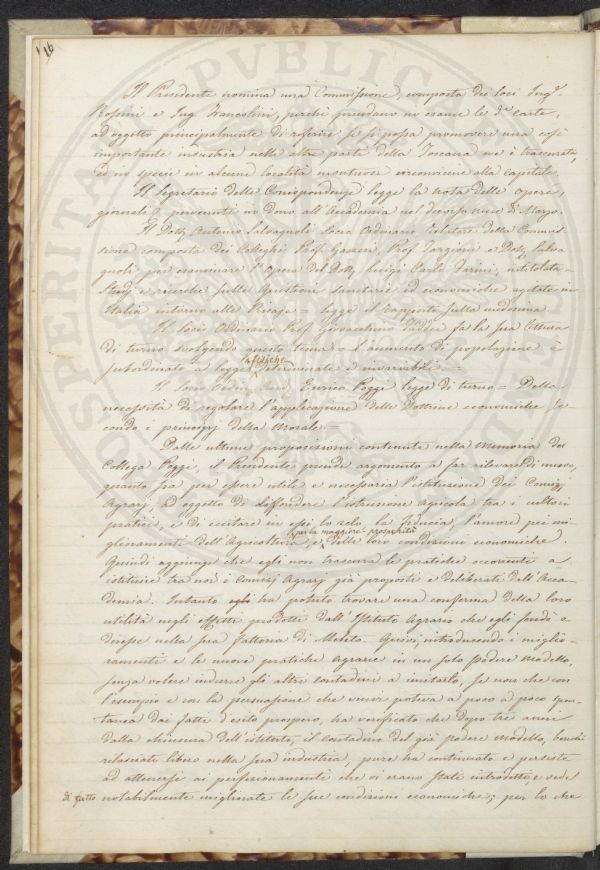 16
Il Presidente nomina una Commissione, composta dei Soci Ing.
Rossini e Ing. Francolini, perché prendano in esame le d.e carte,
ad oggetto principalmente di referire se si possa promovere una così
importante industria nelle altre parti della Toscana ove è trascurata,
ed in specie in alcune località montuose circonvicine alla capitale.
Il Segretario delle Corrispondenze legge la nota delle opere,
giornali &c pervenuti in dono all'Accademia nel decorso mese di Marzo.
Il Dott. Antonio Salvagnoli Socio Ordinario Relatore della Commis-
sione composta dei Colleghi Prof. Gazzeri, Prof. Targioni e Dott. Salva
gnoli per esaminare l'opera del Dott. Luigi Carlo Farini, intitolata =
Studj e ricerche sulle Questioni Sanitarie ed economiche agitate in
Italia intorno alle Risaje = legge il rapporto sulla medesima.
Il Socio Ordinario Prof. Giovacchino Taddei fa la sua lettura
di turno svolgendo questo tema = l'aumento di popolazione è
subordinato a leggi fisiche determinate e invariabili. =
Il Socio Ordinario Enrico Poggi legge di turno = Della
necessità di regolare l'applicazione delle Dottrine economiche se
condo i principj della Morale. =
Dalle ultime proposizioni contenute nella Memoria del
Collega Poggi, il Presidente prende argomento a far rilevare di nuovo,
quanto sia per essere utile e necessaria l'istituzione dei Comizj
Agrarj, ad oggetto di diffondere l'istruzione agricola tra i cultori
pratici, e di eccitare in essi lo zelo, la fiducia, l'amore pei mi-
glioramenti dell'Agricoltura, e per la maggiore prosperità delle loro condizioni economiche.
Quindi aggiunge che egli non trascura le pratiche occorrenti a
istituire tra noi i Comizj Agrarj già proposti e deliberati dall'Acca-
demia. Intanto egli ha potuto trovare una conferma della loro
utilità negli effetti prodotti dall'Istituto Agrario che egli fondò e
diresse nella sua fattoria di Meleto. Quivi, introducendo i miglio-
ramenti e le nuove pratiche agrarie in un solo podere modello,
senza volere indurre gli altri contadini a imitarlo, se non che con
l'esempio e con la persuasione che venir poteva a poco a poco spon-
tanea dai fatti d'esito prospero, ha verificato che dopo tre anni
dalla chiusura dell'istituto, il contadino del già podere modello, benché
rilasciato libero nella sua industria, pure ha continuato e persiste
ad attenersi ai perfezionamenti che vi erano stati introdotti, e vede
di fatto notabilmente migliorate le sue condizioni economiche; per lo che